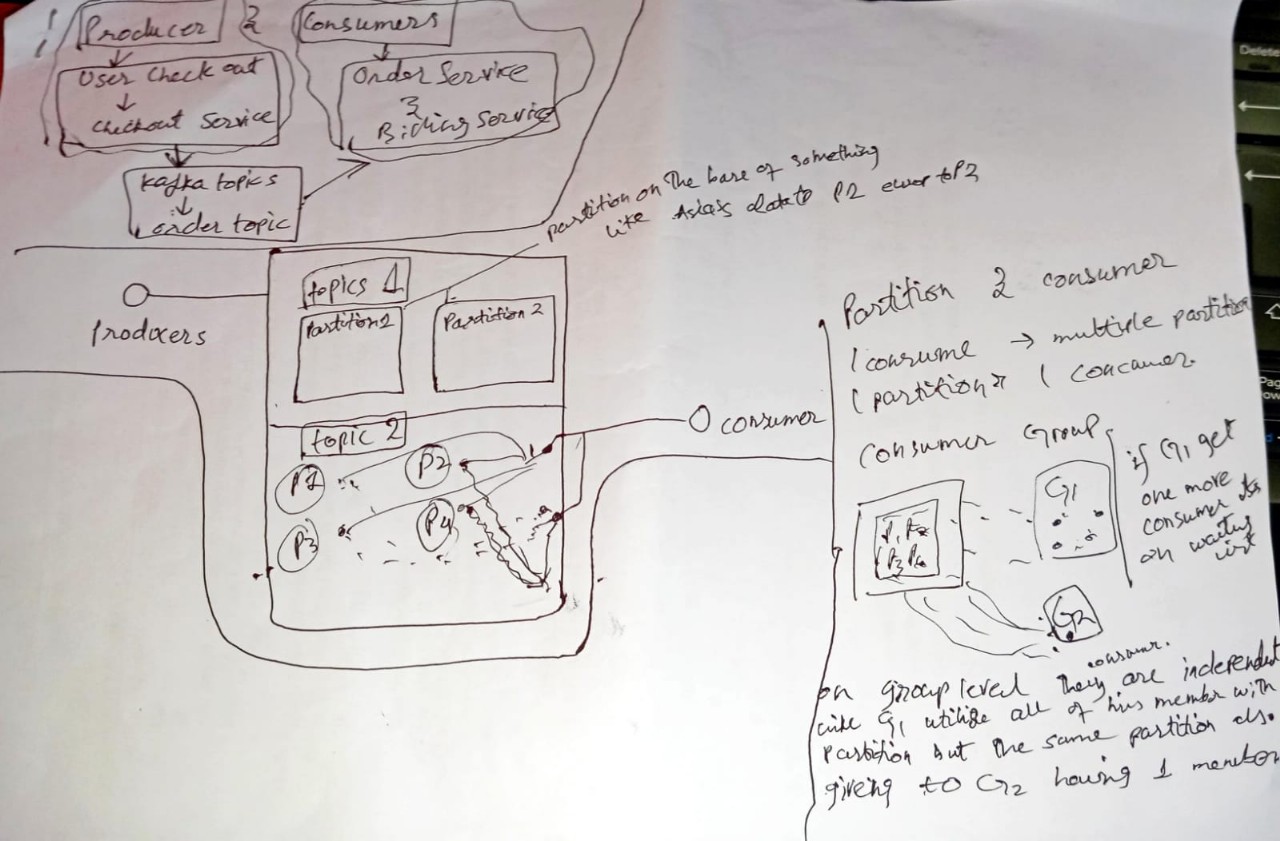 Producer
&
Consumers
User check out
checkout Service
Order Service
&
Billing Service
Kafka topics
order topic
partition on the base of something
like Asia's data to P2 to P2
topics 1
Partition 1
Partition 2
Producers
topic 2
P1
P2
P3
P4
consumer
Partition & consumer
1 consume → multiple partition
1 partition → 1 concumer.
Consumer Group
P1 P2
P3 P4
G1
G2
if G1 get
one more
consumer
on waiting
list
on group level they are independent
consumr.
like G1 utilize all of his member with
partition but the same partition als.
giveing to G2 having 1 member
Delete
Pag